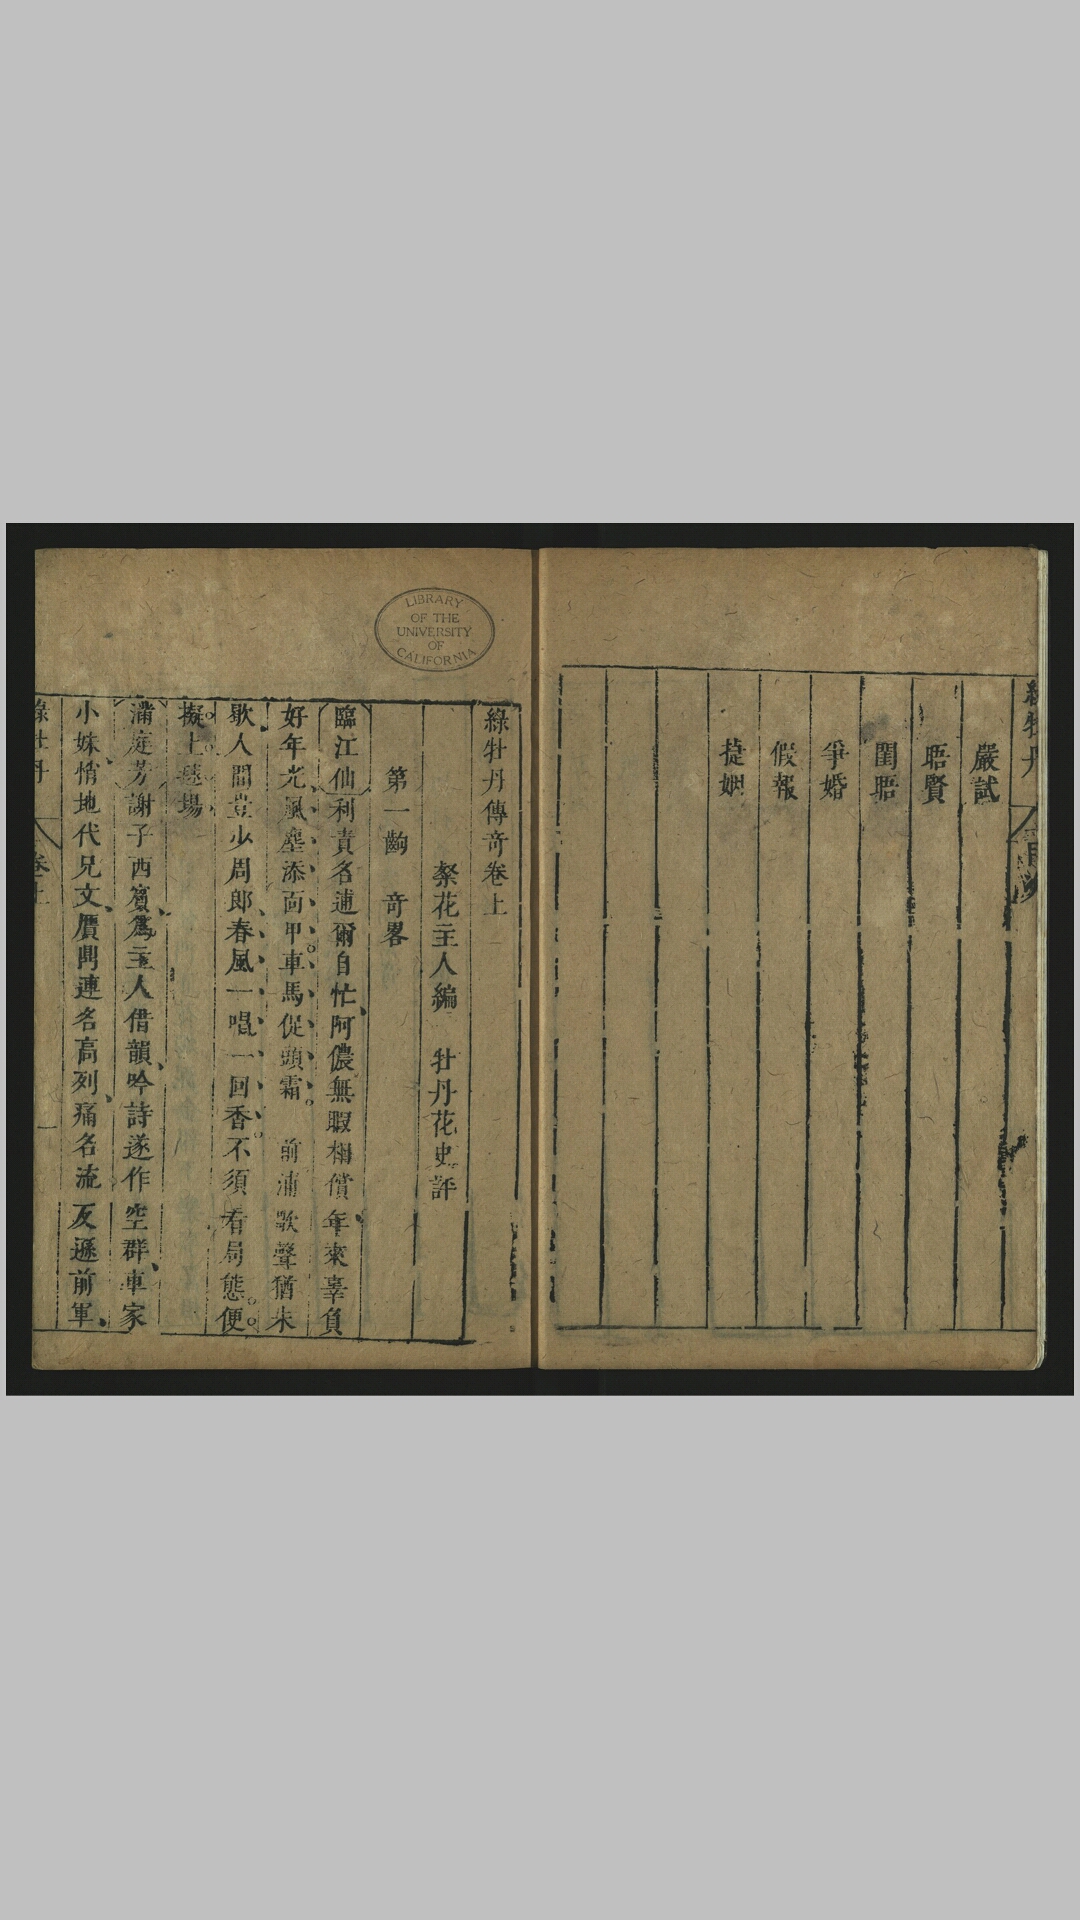 綠牡丹
嚴試
晤賢
閨晤
爭婚
假報
捷姻
LIBRARY
OF THE
UNIVERSITY
OF
CALIFORNIA
綠牡丹傳奇卷上
粲花主人編 牡丹花史評
第一齣 奇畧
臨江仙利責名逋爾自忙阿儂無暇相償年來辜負
好年光風塵添面甲車馬促頭霜 前浦歌聲猶未
歇人間豈少周郎春風一唱一回香不須看局態便
擬上毬場
滿庭芳謝子西賓爲主人借韻吟詩遂作空群車家
小妹悄地代兄文贋鬥連名高列痛名流反遜前軍
綠牡丹 卷上 一